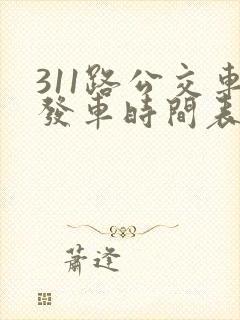 311路公交車
發車時間表
蕭逵